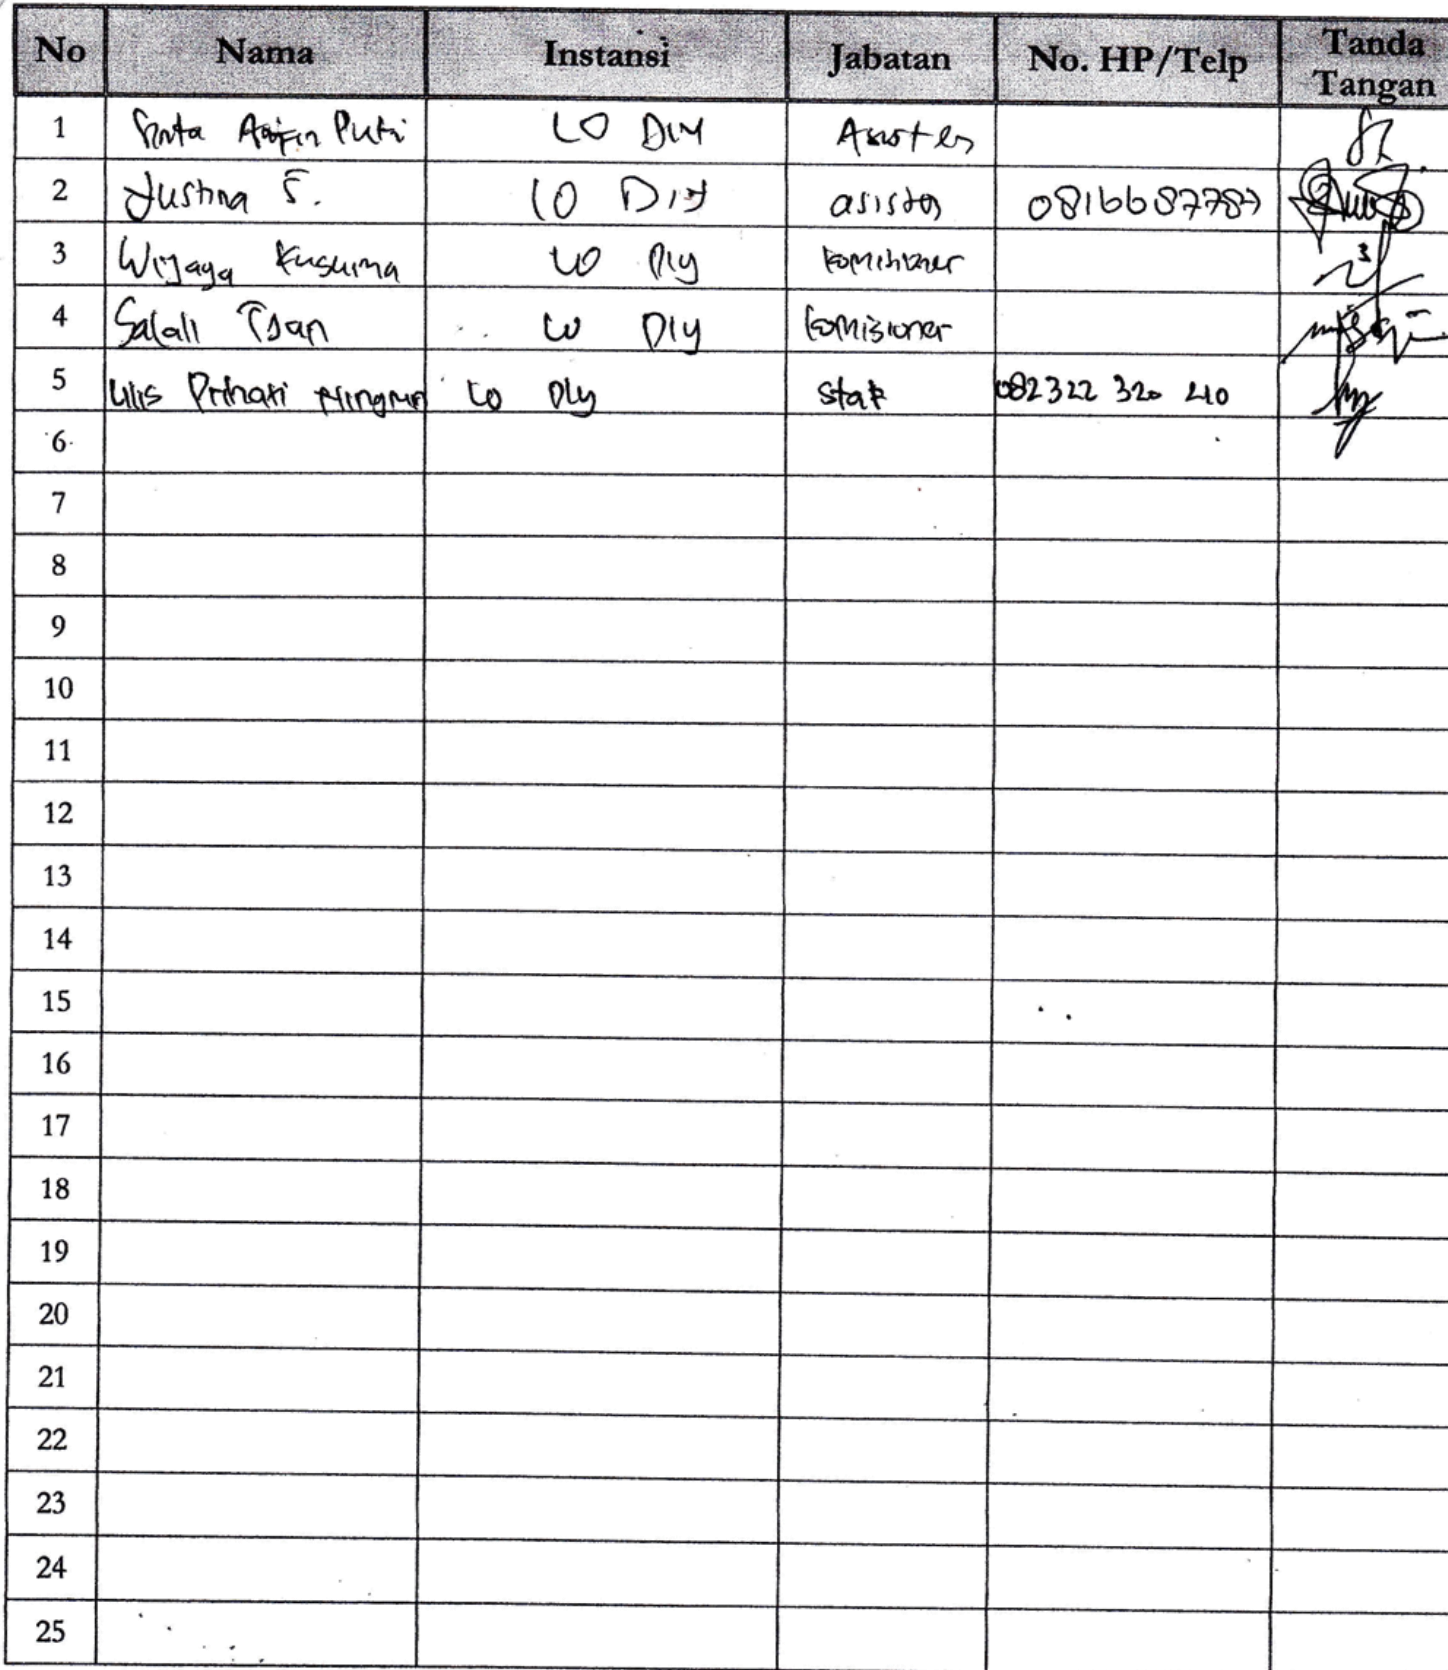 No Nama Instansi Jabatan No. HP/Telp Tanda Tangan
1 Putri LO DIY Asisten
2 Justina S. LO DIY asisten 0816687787
3 Wijaya Kusuma LO DIY komisioner
4 LO DIY komisioner
5 Prihati LO DIY staf 082322 320 210
6
7
8
9
10
11
12
13
14
15
16
17
18
19
20
21
22
23
24
25